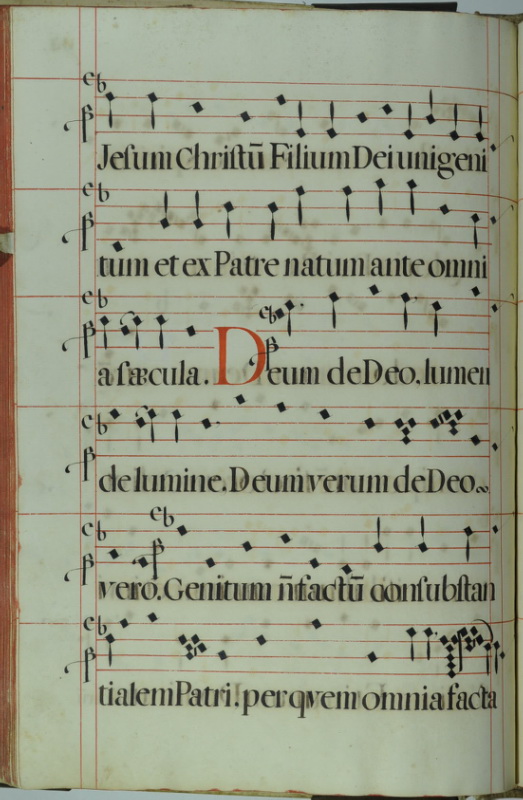 Jeſum Chriſtū Filium Dei unigeni
tum et ex Patre natum ante omni
a ſæcula. Deum de Deo, lumen
de lumine. Deum verum de Deo
vero. Genitum n̄ factū conſubſtan
tialem Patri. per qvem omnia facta